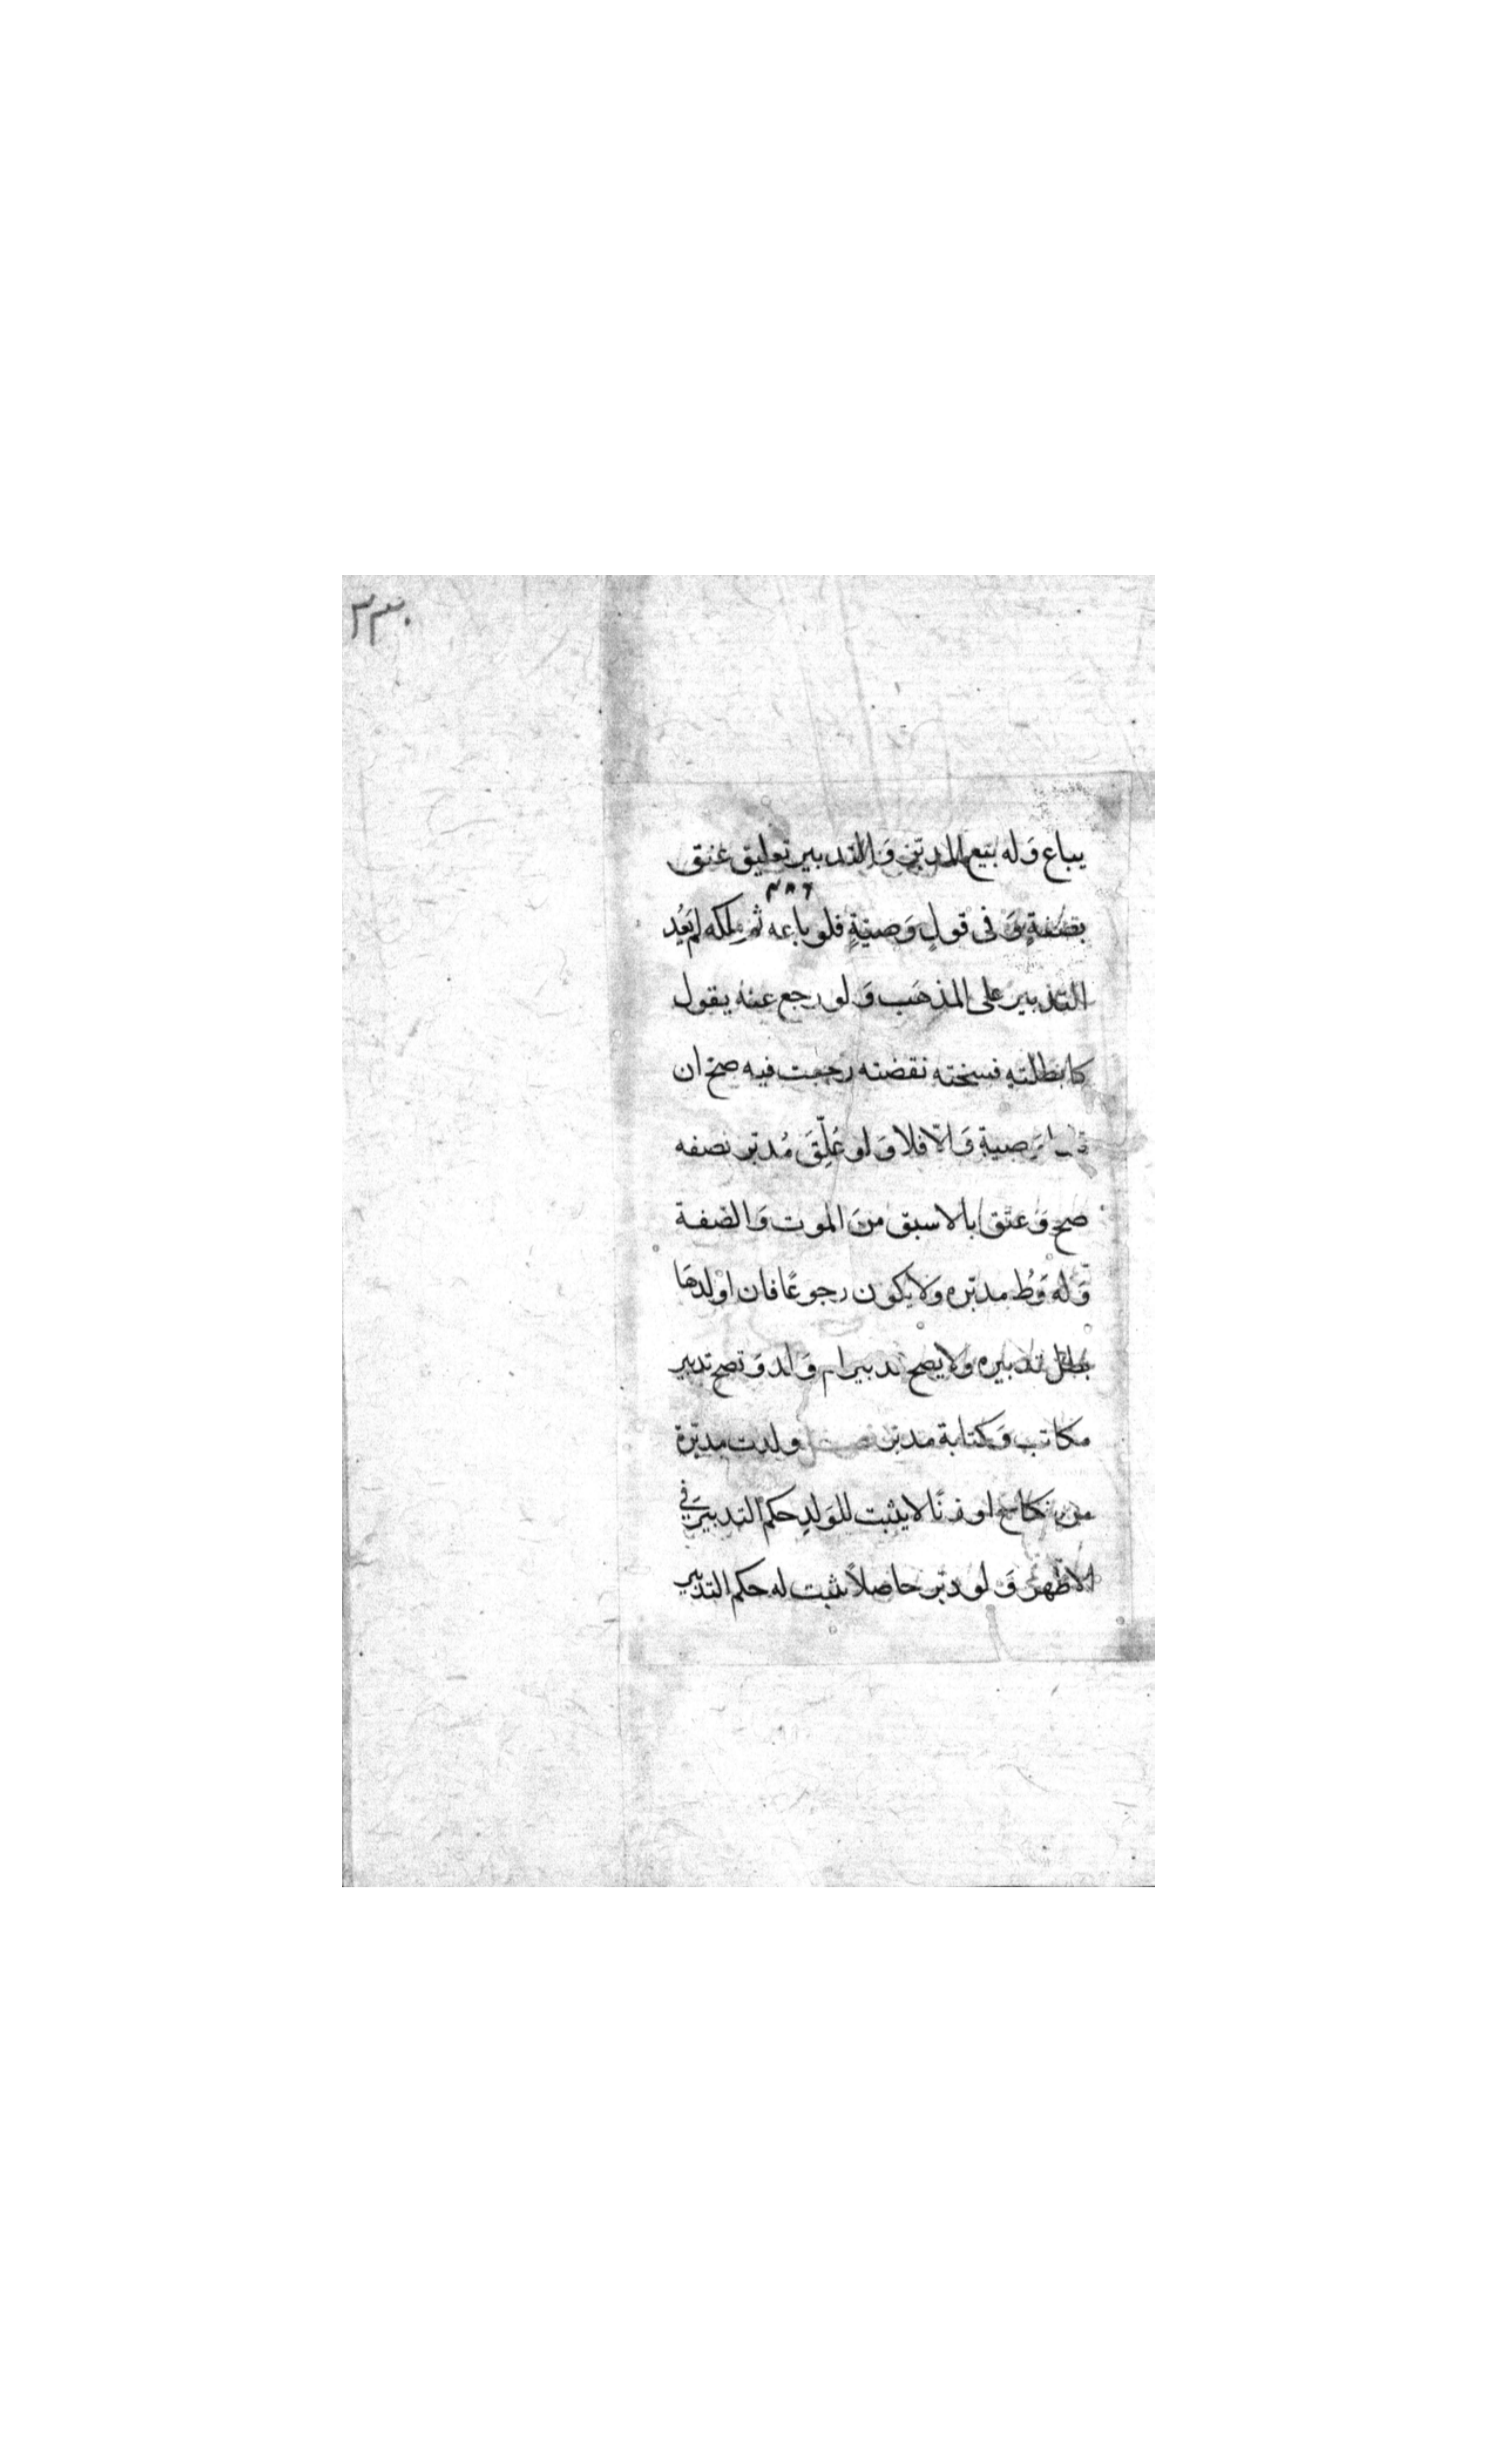 ٣٣٠
يباع وَله بيع المدبّر وَالتدبير تعليق عتق
بصفةٍ وَفى قولٍ وَصيّةٍ فلو باعه ثم ملكه لم يَعُد
التدبير على المذهَب وَلو رجع عنه يقول
كابطلته فسخته نقضته رجعت فيه صحّ ان
وَصية وَالّا فلا وَلو عُلِّقَ مُدبّر نصفه
صحّ وَعتق بالاسبق منَ الموت وَالصّفة
وَله وَطُ مدبّره وَلا يكون رجوعًا فان اوْلدهَا
بطل تدبيره ولا يصح تدبير ام وَلد وَتصح تدبير
مكاتب وَكتابة مدبّر ولدت مدبّرة
من نكاح او زنًا لا يثبت للوَلدِ حكم التدبيرَ فى
الاظهر وَلو دبّر حاصلاً ثبت له حكم التدبير